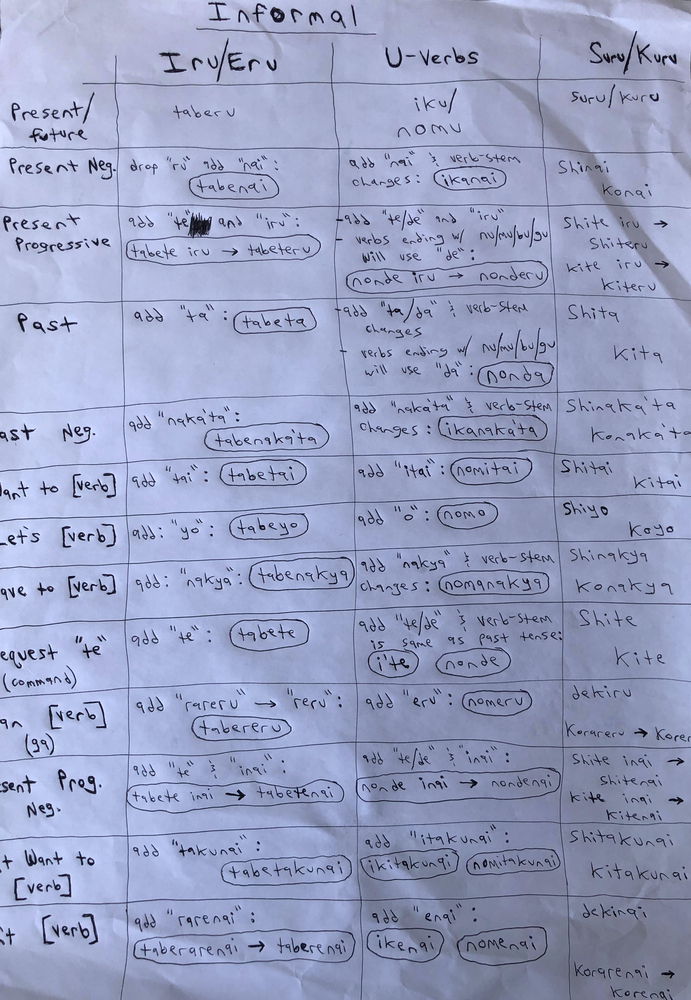 Informal
Iru/Eru
U-Verbs
Suru/Kuru
Present/
future
taberu
iku/
nomu
suru/kuru
Present Neg.
drop "ru" add "nai":
tabenai
add "nai" & verb-stem
changes: ikanai
Shinai
Konai
Present
Progressive
add "te" and "iru":
tabete iru → tabeteru
-add "te/de" and "iru"
- verbs ending w/ nu/mu/bu/gu
will use "de":
nonde iru → nonderu
Shite iru →
Shiteru
kite iru →
Kiteru
Past
add "ta": tabeta
-add "ta/da" & verb-stem
changes
- verbs ending w/ nu/mu/bu/gu
will use "da": nonda
Shita
Kita
ast Neg.
add "naka'ta":
tabenaka'ta
add "naka'ta" & verb-stem
changes: ikanaka'ta
Shinaka'ta
Konaka'ta
ant to [verb]
add "tai": tabetai
add "itai": nomitai
Shitai
Kitai
Let's [verb]
add: "yo": tabeyo
add "o": nomo
Shiyo
Koyo
ave to [verb]
add: "nakya": tabenakya
add "nakya" & verb-stem
changes: nomanakya
Shinakya
Konakya
equest "te"
(command)
add "te": tabete
add "te/de" & verb-stem
is same as past tense:
i'te nonde
Shite
Kite
an [verb]
(ga)
add "rareru" → "reru":
tabereru
add "eru": nomeru
dekiru
Korareru → Korer
sent Prog.
Neg.
add "te" & "inai":
tabete inai → tabetenai
add "te/de" & "inai":
nonde inai → nondenai
Shite inai →
Shitenai
kite inai →
Kitenai
't Want to
[verb]
add "takunai":
tabetakunai
add "itakunai":
ikitakunai nomitakunai
Shitakunai
Kitakunai
't [verb]
add "rarenai":
taberarenai → taberenai
add "enai":
ikenai nomenai
dekinai
Korarenai →
Korenai